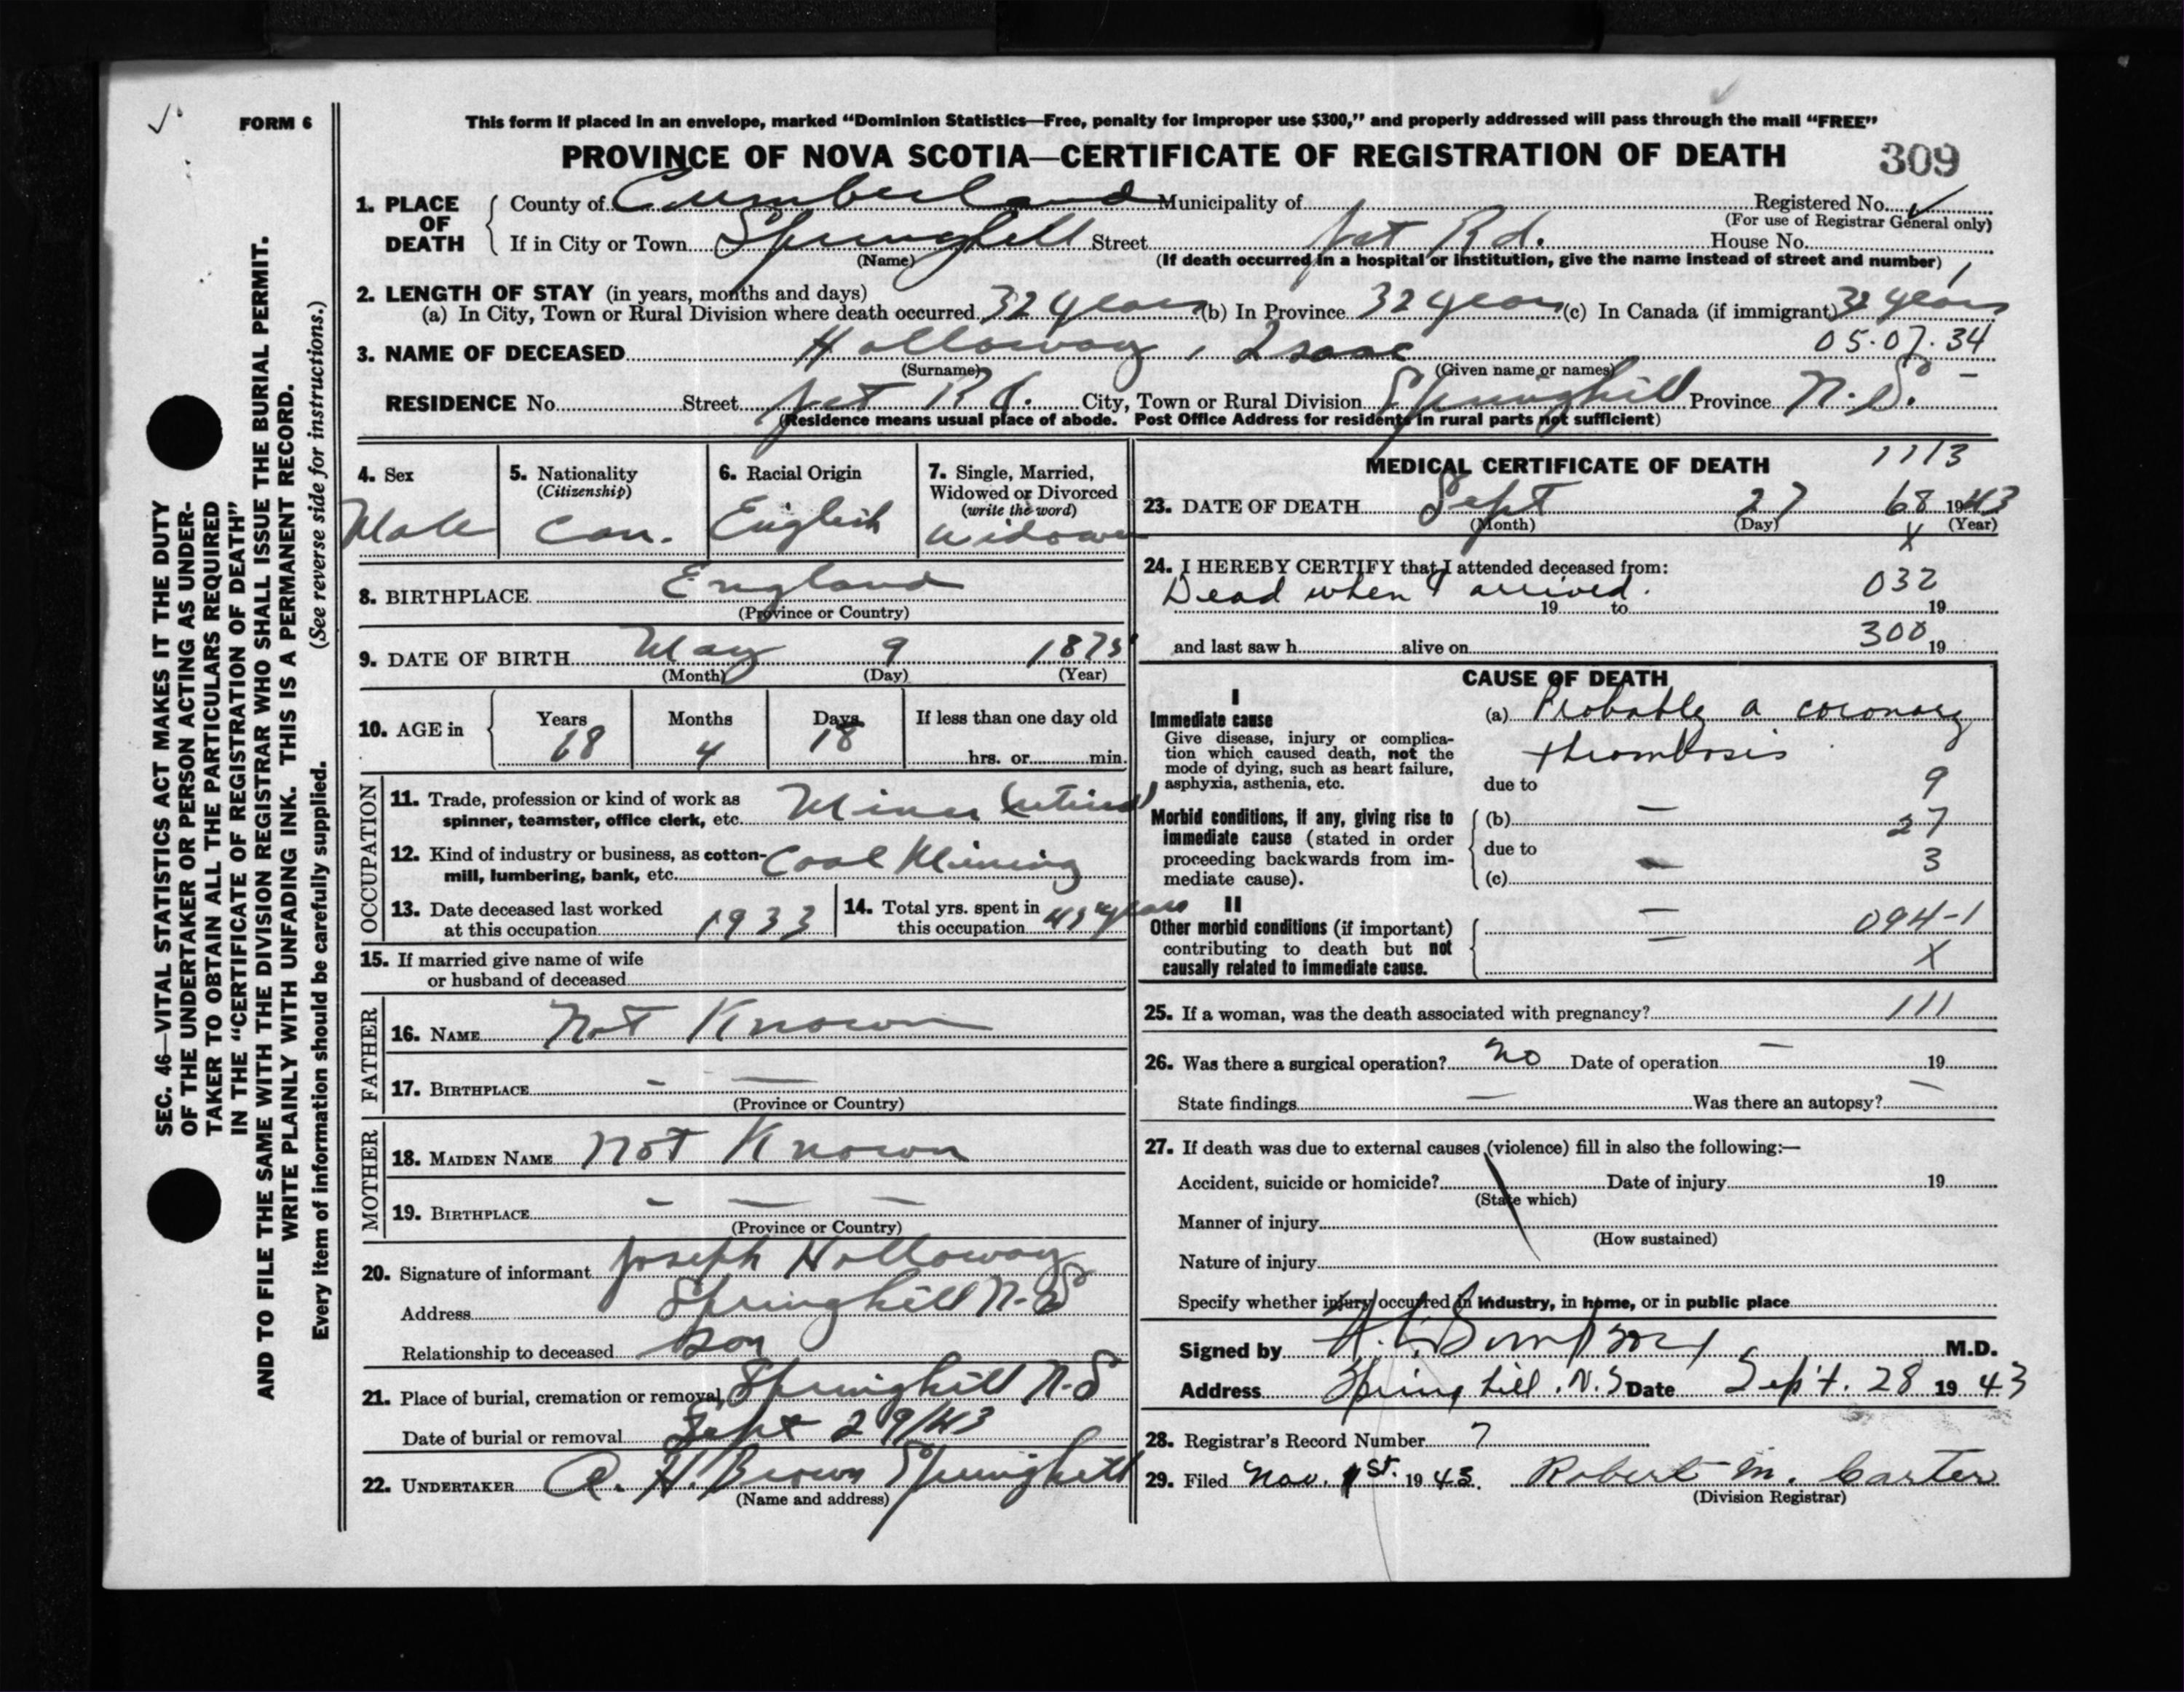 FORM 6
This form if placed in an envelope, marked “Dominion Statistics—Free, penalty for improper use $300,” and properly addressed will pass through the mail “FREE”
PROVINCE OF NOVA SCOTIA—CERTIFICATE OF REGISTRATION OF DEATH 309
1. PLACE OF DEATH
County of Cumberland Municipality of Registered No.
(For use of Registrar General only)
If in City or Town Springhill Street Rd. House No.
(Name) (If death occurred in a hospital or institution, give the name instead of street and number)
2. LENGTH OF STAY (in years, months and days)
(a) In City, Town or Rural Division where death occurred 32 years (b) In Province 32 years (c) In Canada (if immigrant) 32 years
3. NAME OF DECEASED Holloway, Isaac 05.07.34
(Surname) (Given name or names)
RESIDENCE No. Street Rd. City, Town or Rural Division Springhill Province N.S.
(Residence means usual place of abode. Post Office Address for residents in rural parts not sufficient)
4. Sex
Male
5. Nationality
(Citizenship)
Can.
6. Racial Origin
English
7. Single, Married,
Widowed or Divorced
(write the word)
Widower
8. BIRTHPLACE England
(Province or Country)
9. DATE OF BIRTH May 9 1875
(Month) (Day) (Year)
10. AGE in Years Months Days If less than one day old
68 4 18 hrs. or min.
OCCUPATION
11. Trade, profession or kind of work as
spinner, teamster, office clerk, etc. Miner (retired)
12. Kind of industry or business, as cotton-
mill, lumbering, bank, etc. Coal Mining
13. Date deceased last worked
at this occupation 1933
14. Total yrs. spent in
this occupation years
15. If married give name of wife
or husband of deceased
FATHER
16. NAME Not Known
17. BIRTHPLACE - —
(Province or Country)
MOTHER
18. MAIDEN NAME Not Known
19. BIRTHPLACE - — -
(Province or Country)
20. Signature of informant Joseph Holloway
Address Springhill N.S
Relationship to deceased Son
21. Place of burial, cremation or removal Springhill N.S
Date of burial or removal Sept 29/43
22. UNDERTAKER A. H. Brown Springhill
(Name and address)
MEDICAL CERTIFICATE OF DEATH 1113
23. DATE OF DEATH Sept 27 68 1943
(Month) (Day) (Year)
X
24. I HEREBY CERTIFY that I attended deceased from:
Dead when I arrived. 032
19 to 19
and last saw h alive on 300 19
CAUSE OF DEATH
I
Immediate cause
Give disease, injury or complica-
tion which caused death, not the
mode of dying, such as heart failure,
asphyxia, asthenia, etc.
(a) Probably a coronary
thrombosis
due to 9
Morbid conditions, if any, giving rise to
immediate cause (stated in order
proceeding backwards from im-
mediate cause).
(b) — 27
due to 3
(c) —
II
Other morbid conditions (if important)
contributing to death but not
causally related to immediate cause.
— 094-1
— X
25. If a woman, was the death associated with pregnancy? 111
26. Was there a surgical operation? No Date of operation — 19
State findings — Was there an autopsy? —
27. If death was due to external causes (violence) fill in also the following:—
Accident, suicide or homicide? Date of injury 19
(State which)
Manner of injury
(How sustained)
Nature of injury
Specify whether injury occurred in industry, in home, or in public place
Signed by M.D.
Address Springhill. N.S Date Sept. 28 1943
28. Registrar's Record Number 7
29. Filed Nov. 1st. 1943. Robert M. Carter
(Division Registrar)
SEC. 46—VITAL STATISTICS ACT MAKES IT THE DUTY
OF THE UNDERTAKER OR PERSON ACTING AS UNDER-
TAKER TO OBTAIN ALL THE PARTICULARS REQUIRED
IN THE “CERTIFICATE OF REGISTRATION OF DEATH”
AND TO FILE THE SAME WITH THE DIVISION REGISTRAR WHO SHALL ISSUE THE BURIAL PERMIT.
WRITE PLAINLY WITH UNFADING INK. THIS IS A PERMANENT RECORD.
Every item of information should be carefully supplied. (See reverse side for instructions.)